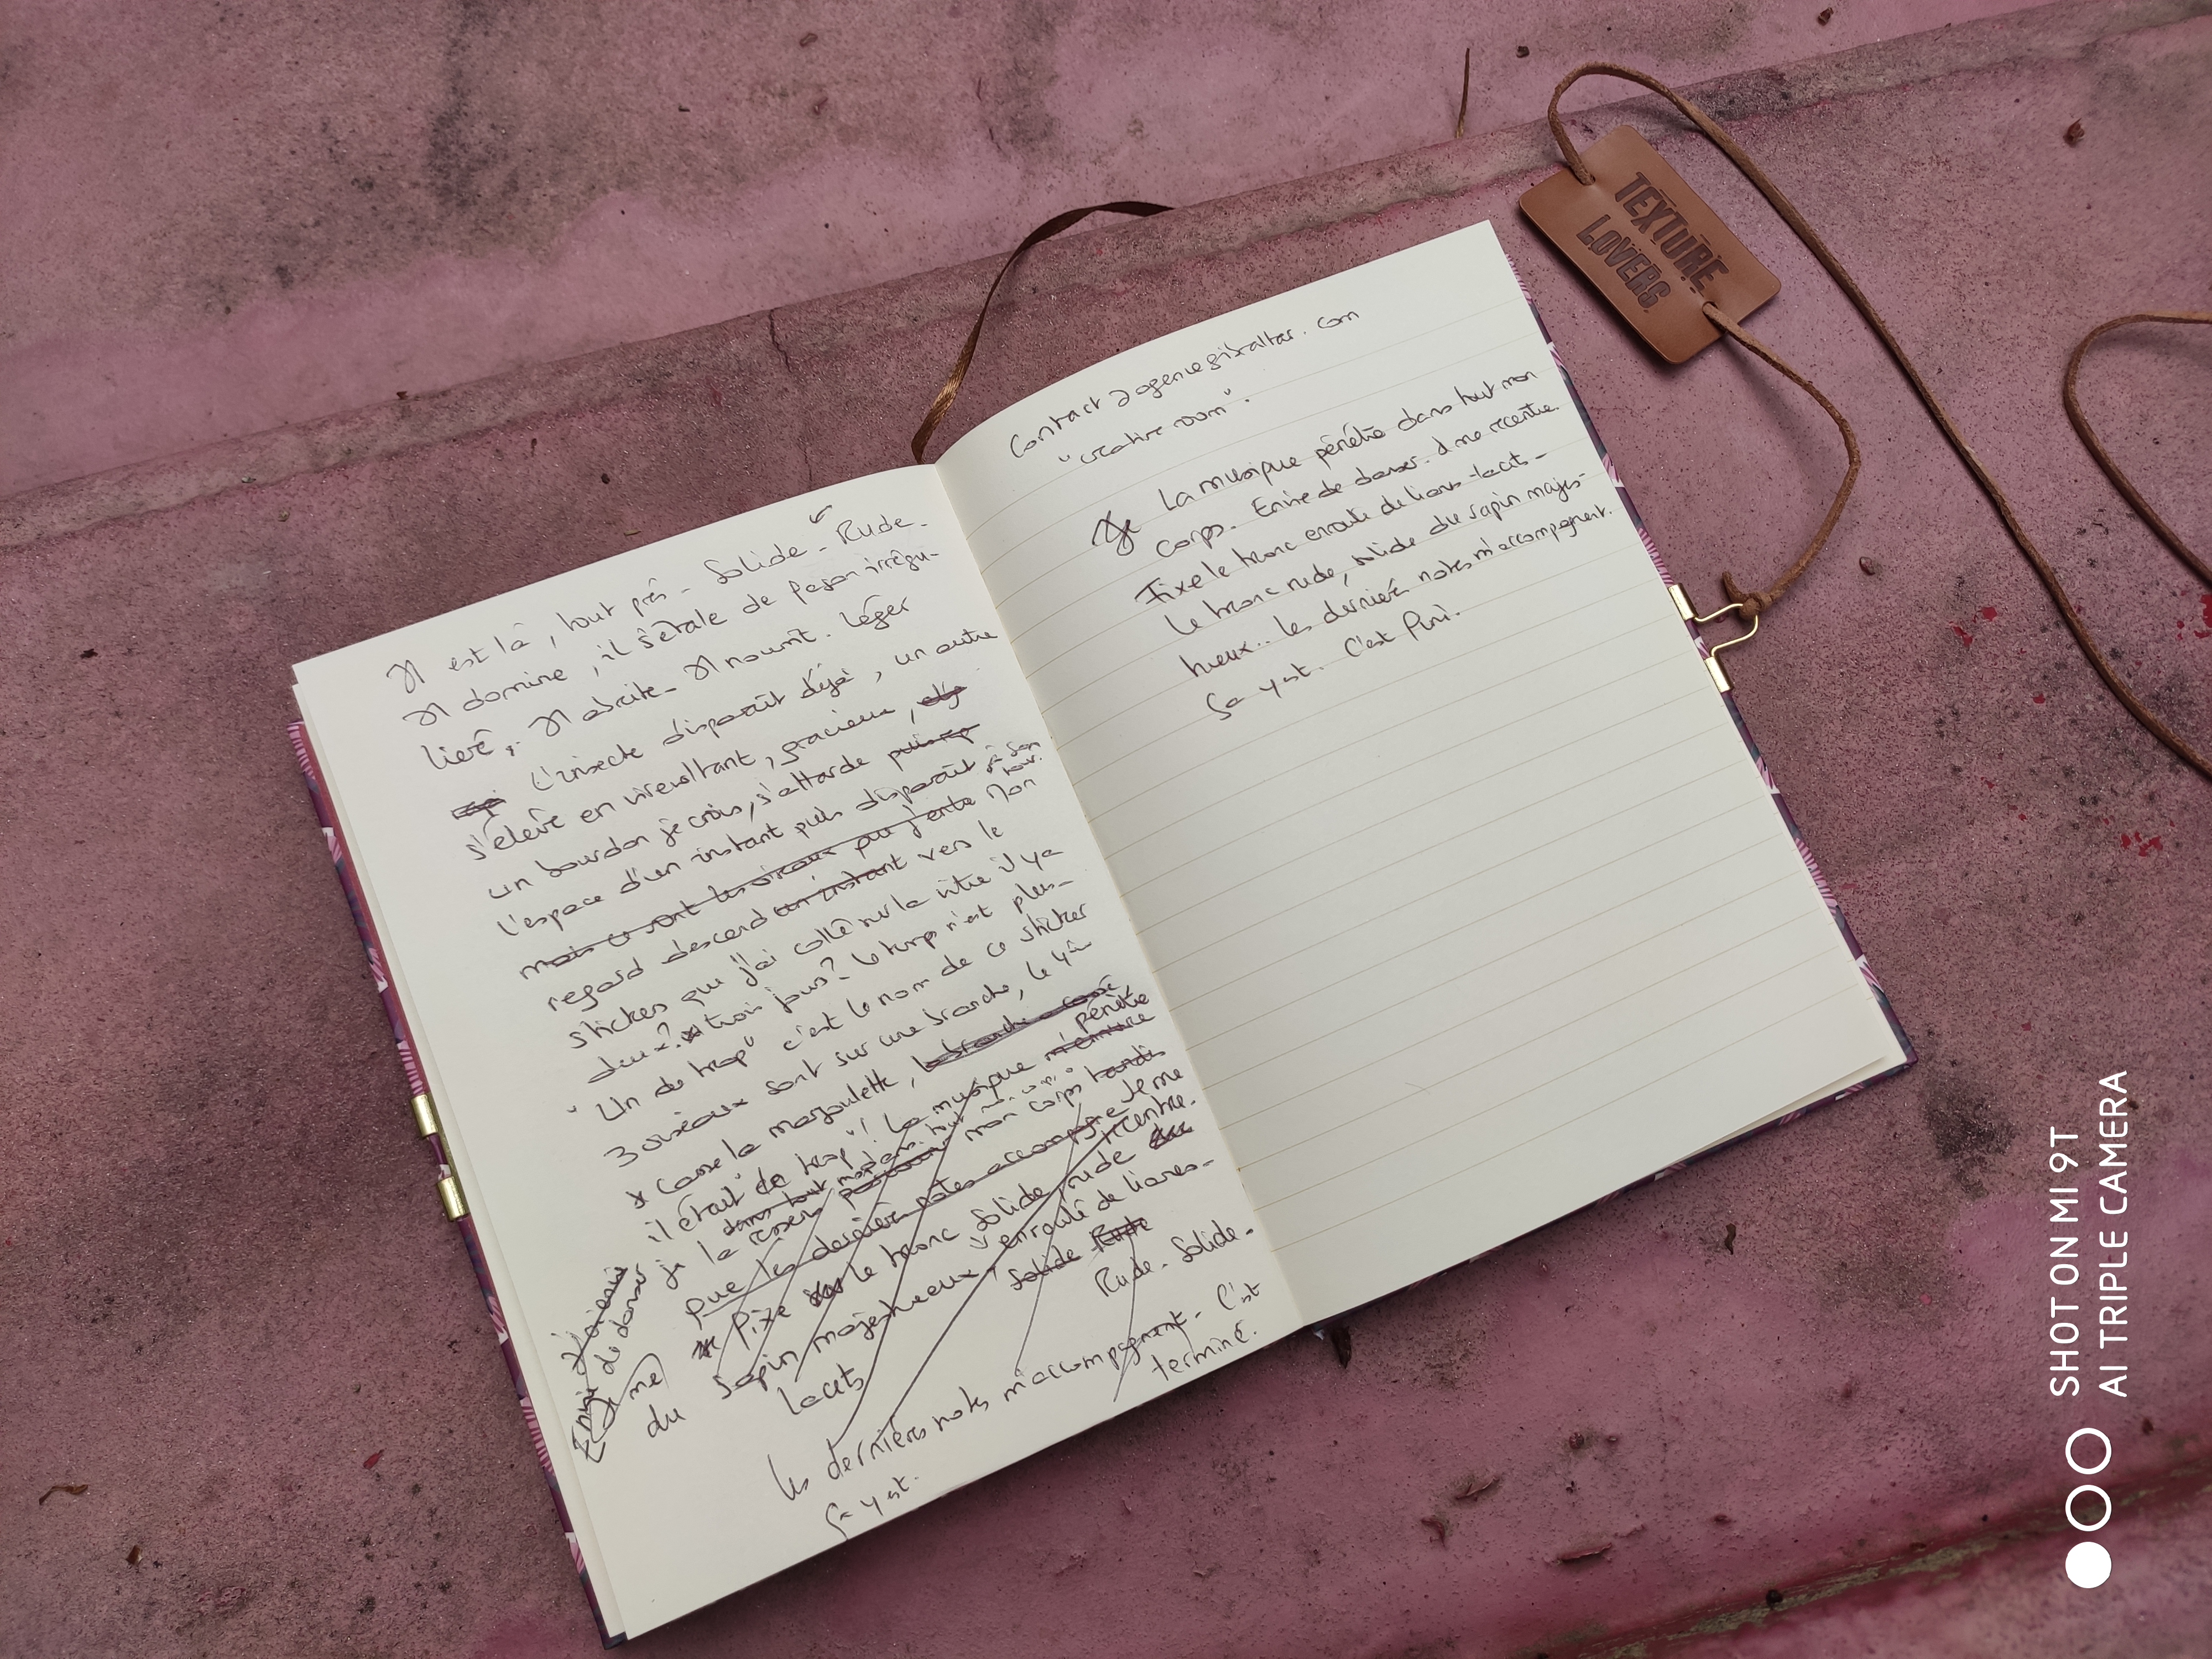 Il est là, tout près. Solide. Rude.
Il domine, il s'étale de façon irrégu-
lière. Il abrite. Il nourrit. Léger
L'insecte disparaît déjà, un autre
s'élève en virevoltant, gracieux,
un bourdon je crois, s'attarde puis
l'espace d'un instant puis disparaît à son tour.
mais ce sont les oiseaux que j'entends Mon
regard descend un instant vers le
sticker que j'ai collé sur la vitre il y a
deux? trois jours? Le temps n'est plus.
"Un de trop" c'est le nom de ce sticker
3 oiseaux sont sur une branche, le 4è
casse la margoulette, la branche a cassé
il était "de trop"! La musique pénètre
dans tout mon corps tandis
que les dernières notes accompagne Je me
recentre.
fixe le tronc solide rude
du sapin majestueux enroulé de lianes-
lacets solide Rude
Rude. Solide.
Les dernières notes m'accompagnent. C'est
terminé.
Ça y est.
Envie
de danser
me
contact@agencegibraltar.com
"creative room".
La musique pénètre dans tout mon
corps. Envie de danser. Je me recentre.
Fixe le tronc enroulé de lianes-lacets-
le tronc rude, solide du sapin majes-
tueux... les dernières notes m'accompagnent.
Ça y est. C'est fini.
TEXTURE
LOVERS.
SHOT ON MI 9T
AI TRIPLE CAMERA